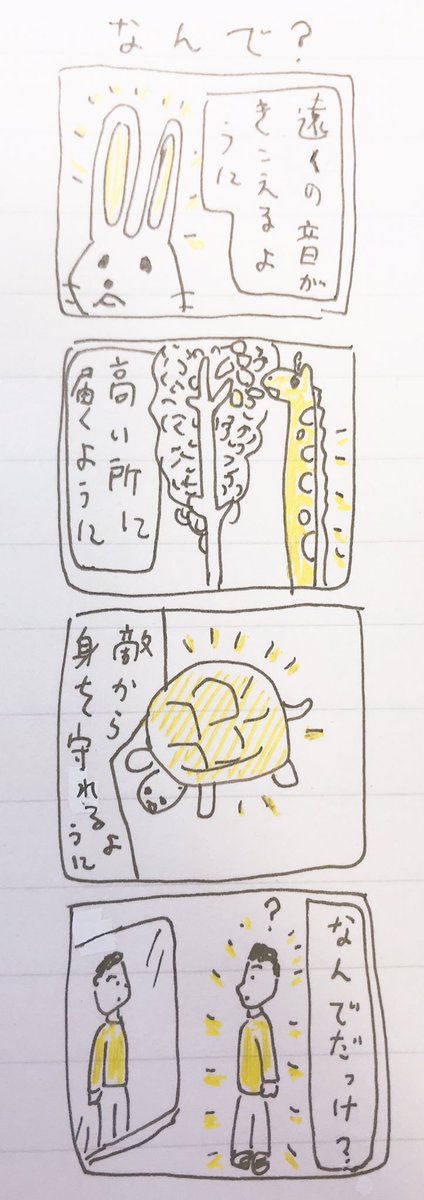 なんで?
遠くの音が
きこえるよ
うに
高い所に
届くように
敵から
身を守れるよ
うに
?
なんでだっけ?